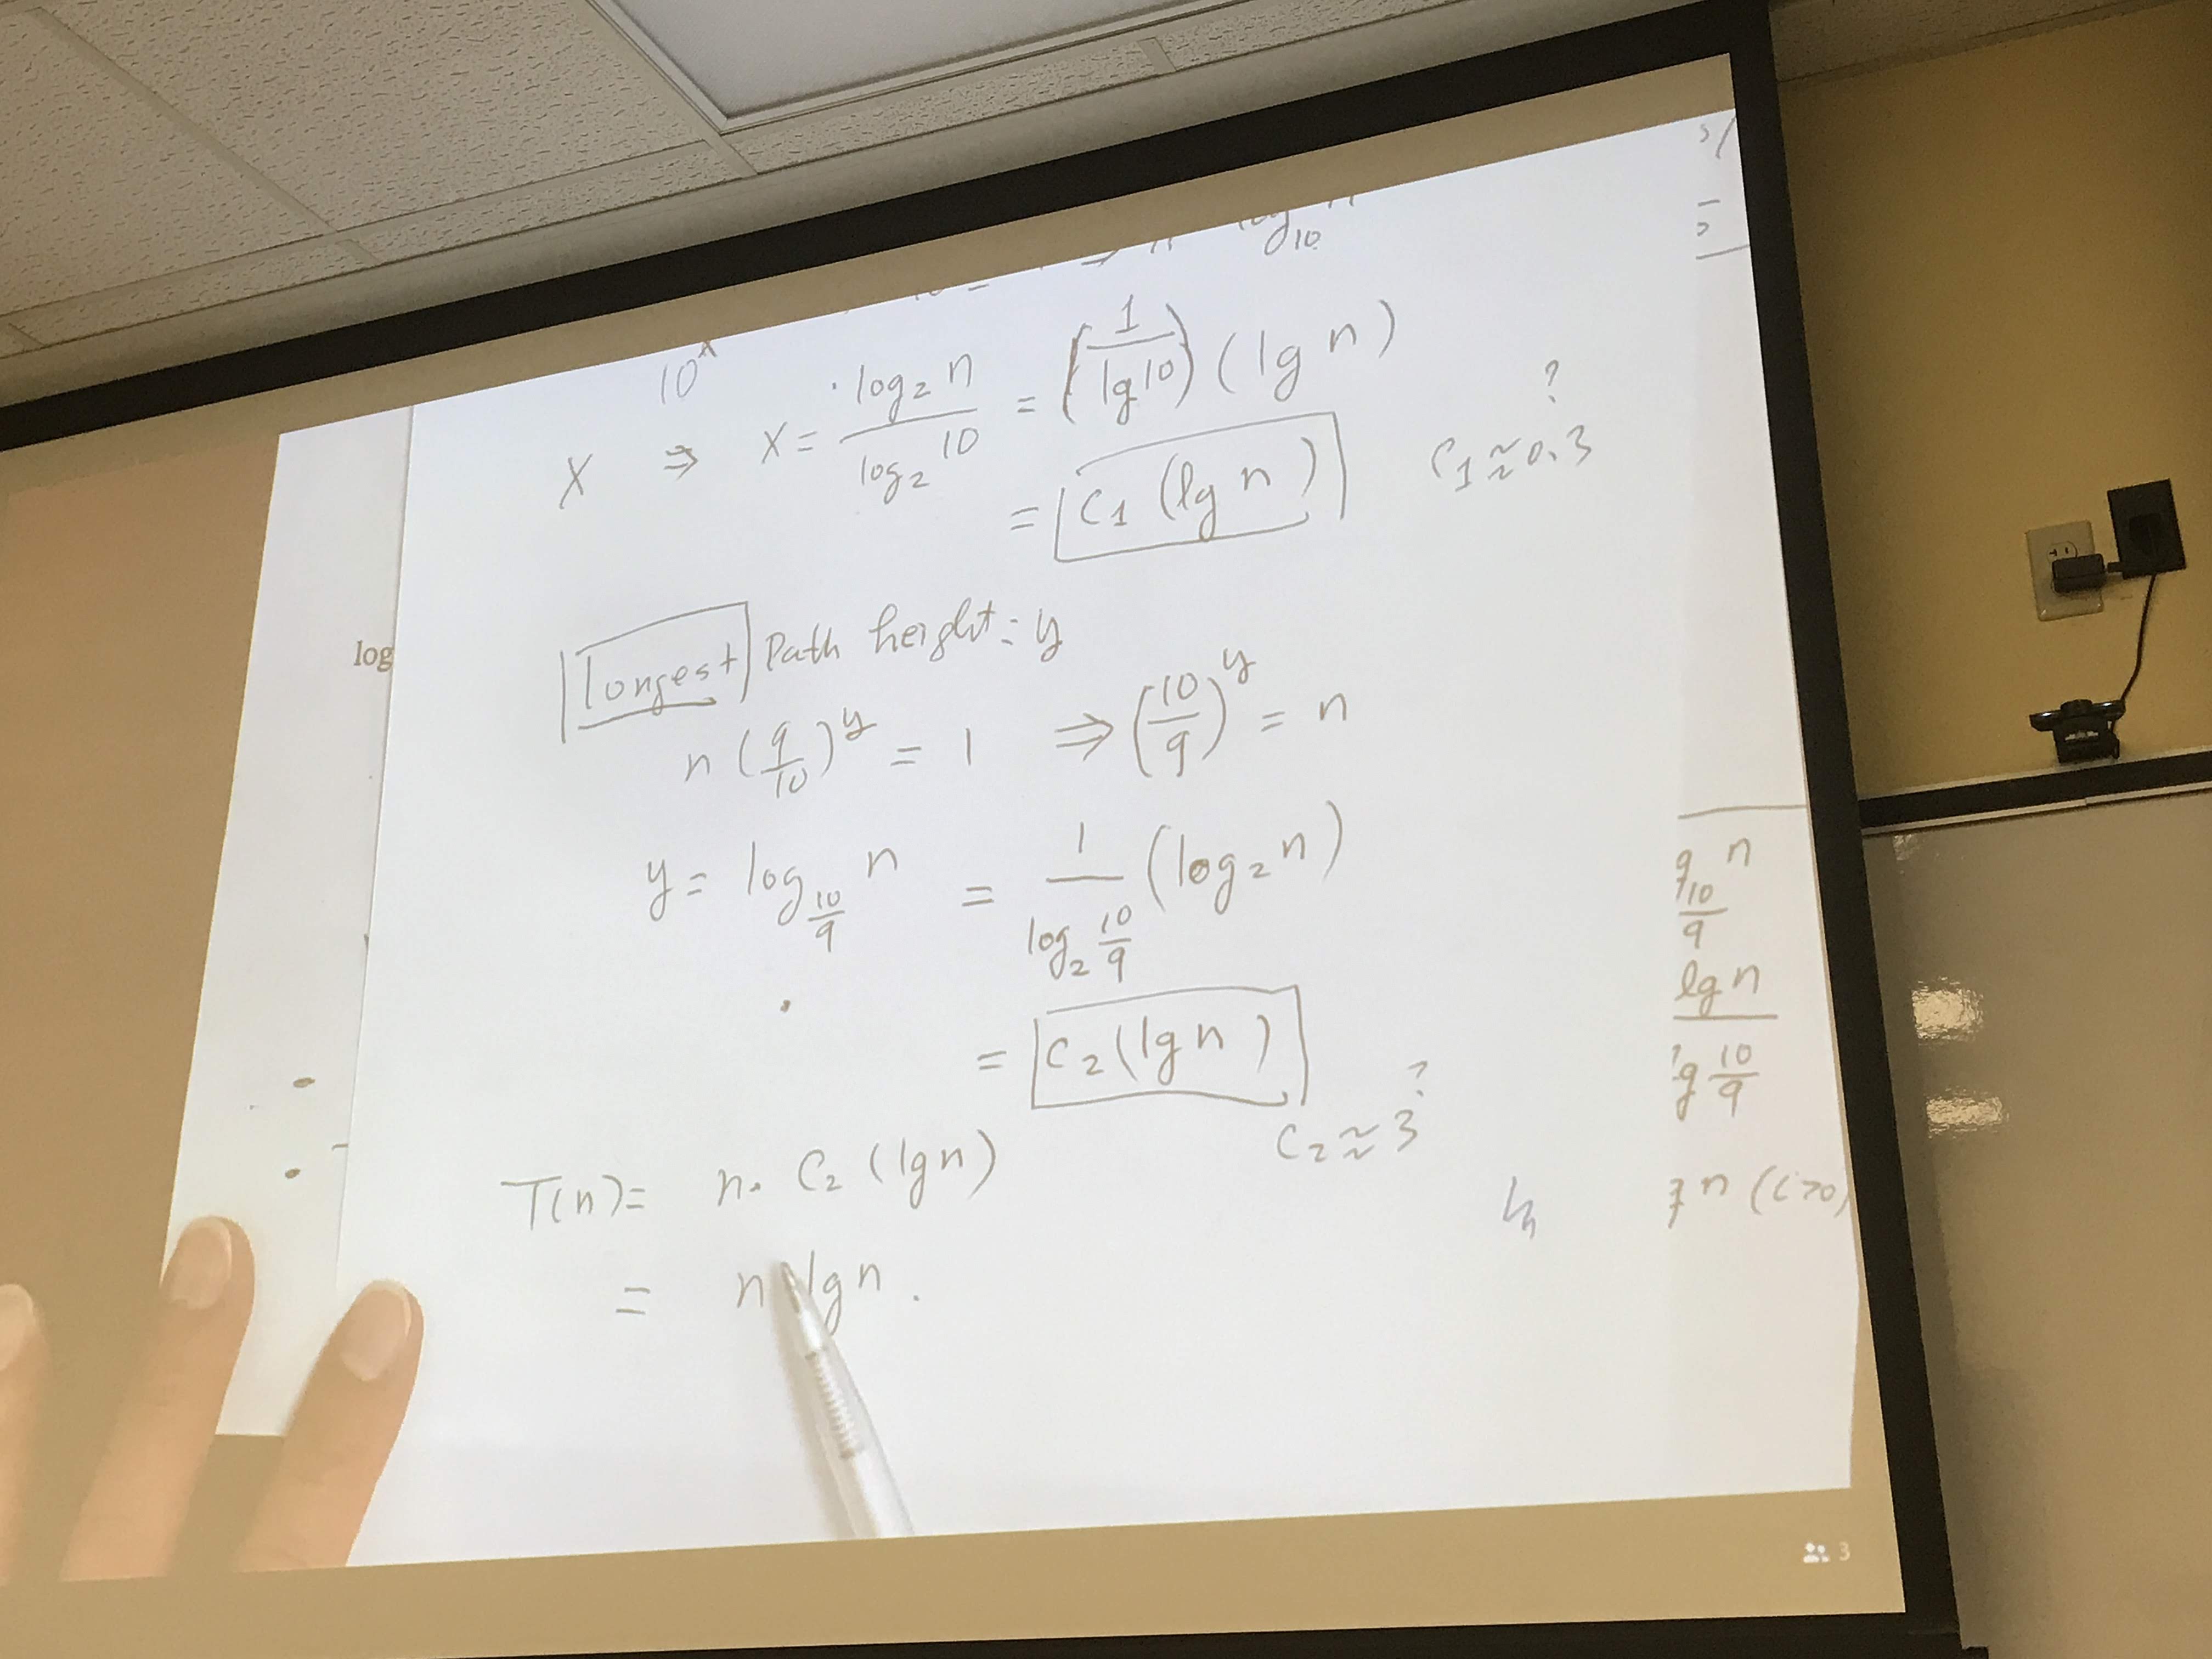 log₁₀
10ˣ
x ⇒ x = log₂ n / log₂ 10 = (1 / lg 10) (lg n)
= C₁ (lg n) C₁ ≈ 0.3 ?
Longest Path height = y
n (9/10)^y = 1 ⇒ (10/9)^y = n
y = log_{10/9} n = 1 / log₂ 10/9 (log₂ n)
= C₂ (lg n)
C₂ ≈ 3 ?
T(n) = n · C₂ (lg n)
= n lg n .
log
n
10/9
lg n
g 10/9
n (c>0)
3